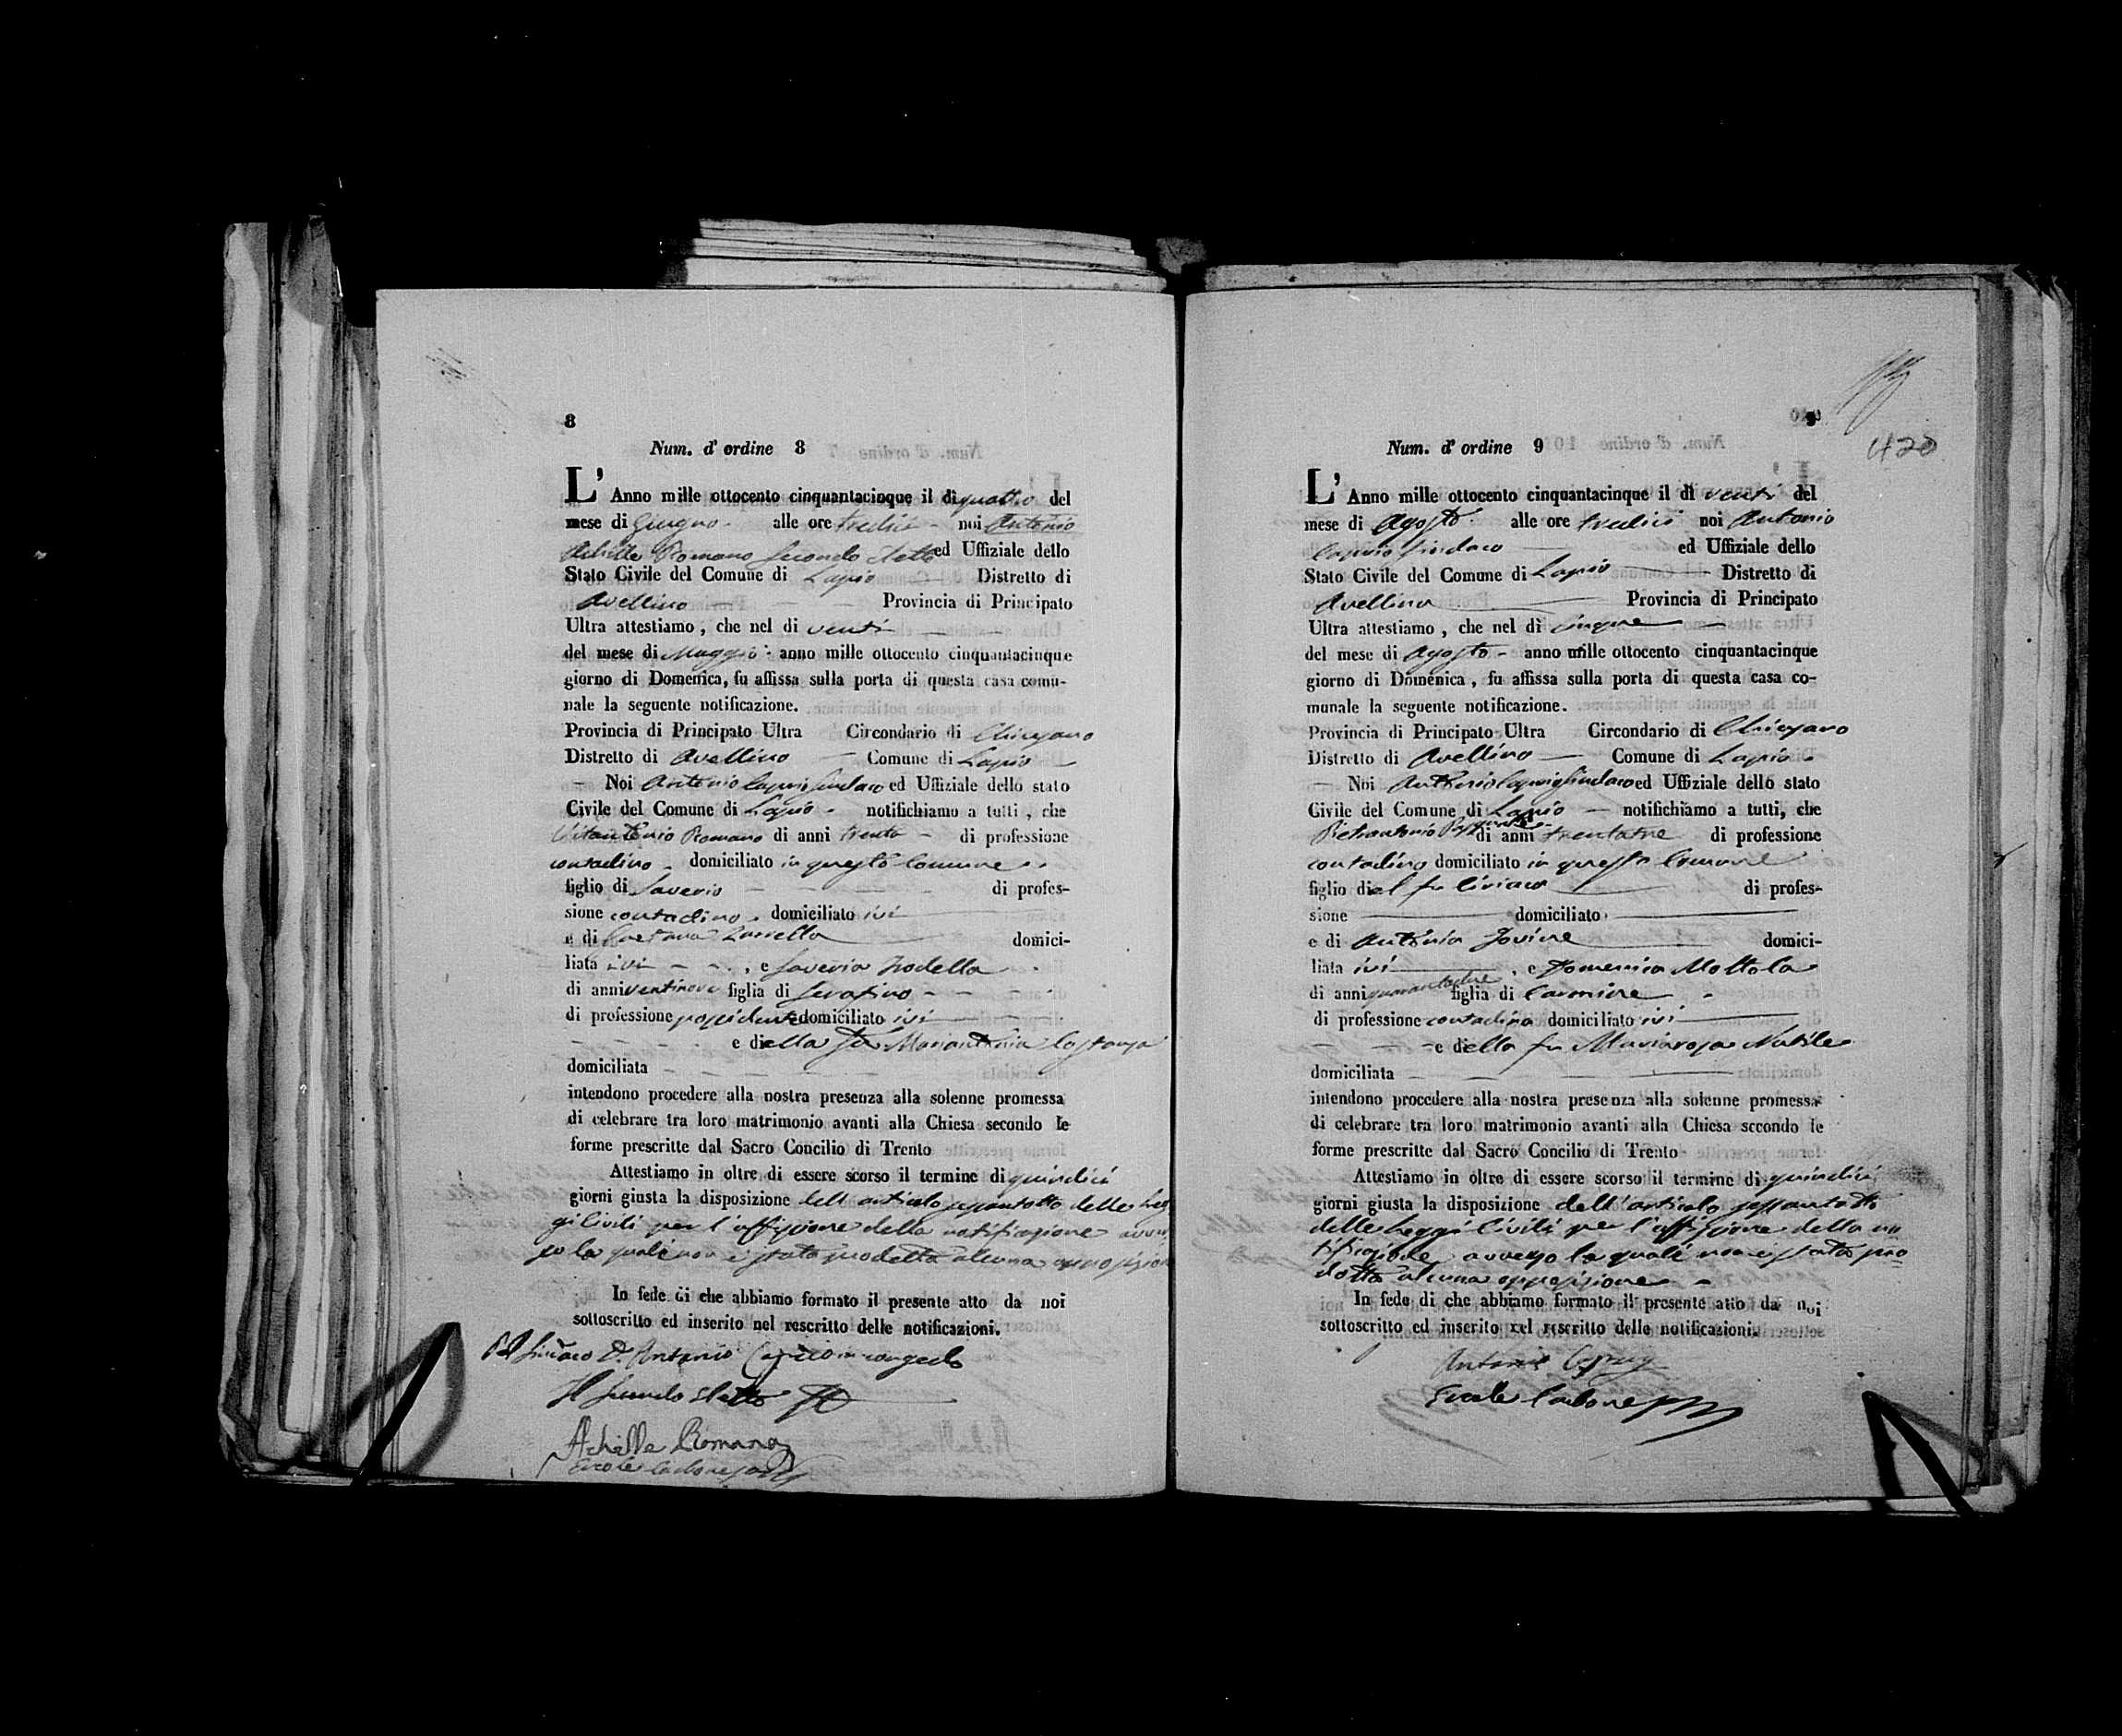 8
Num. d' ordine 8
L' Anno mille ottocento cinquantacinque il dì quattro del
mese di Giugno alle ore tredici noi Antonio
Achille Romano Secondo Eletto ed Uffiziale dello
Stato Civile del Comune di Lapio Distretto di
Avellino Provincia di Principato
Ultra attestiamo, che nel di venti
del mese di Maggio anno mille ottocento cinquantacinque
giorno di Domenica, fu affissa sulla porta di questa casa comu-
nale la seguente notificazione.
Provincia di Principato Ultra Circondario di Chiusano
Distretto di Avellino Comune di Lapio
Noi Antonio Sindaco ed Uffiziale dello stato
Civile del Comune di Lapio notifichiamo a tutti, che
Vitantonio Romano di anni trenta di professione
contadino domiciliato in questo Comune
figlio di Saverio di profes-
sione contadino domiciliato ivi
e di Gaetana domici-
liata ivi , e Saveria
di anni ventinove figlia di Serafino
di professione possidente domiciliato ivi
e di ella fu Mariantonia Costanza
domiciliata
intendono procedere alla nostra presenza alla solenne promessa
di celebrare tra loro matrimonio avanti alla Chiesa secondo le
forme prescritte dal Sacro Concilio di Trento
Attestiamo in oltre di essere scorso il termine di quindici
giorni giusta la disposizione dell articolo sessantotto delle Leg
gi Civili per l'affissione della notificazione avver
so la quale non è stata prodotta alcuna opposizion
In fede di che abbiamo formato il presente atto da noi
sottoscritto ed inserito nel rescritto delle notificazioni.
Pel Sindaco D. Antonio
Il Secondo Eletto
Achille Romano
Ercole Carbone
9
420
Num. d' ordine 9
L' Anno mille ottocento cinquantacinque il dì venti del
mese di Agosto alle ore tredici noi Antonio
Sindaco ed Uffiziale dello
Stato Civile del Comune di Lapio Distretto di
Avellino Provincia di Principato
Ultra attestiamo, che nel dì cinque
del mese di Agosto anno mille ottocento cinquantacinque
giorno di Domenica, fu affissa sulla porta di questa casa co-
munale la seguente notificazione.
Provincia di Principato Ultra Circondario di Chiusano
Distretto di Avellino Comune di Lapio
Noi Antonio Sindaco ed Uffiziale dello stato
Civile del Comune di Lapio notifichiamo a tutti, che
Pietrantonio di anni trentatre di professione
contadino domiciliato in questo Comune
figlio di el fu Ciriaco di profes-
sione domiciliato
e di Antonia Iovine domici-
liata ivi , e Domenica Mottola
di anni figlia di Carmine
di professione contadino domiciliato ivi
e di ella fu Mariarosa Natile
domiciliata
intendono procedere alla nostra presenza alla solenne promessa
di celebrare tra loro matrimonio avanti alla Chiesa secondo le
forme prescritte dal Sacro Concilio di Trento
Attestiamo in oltre di essere scorso il termine di quindici
giorni giusta la disposizione dell'articolo sessantotto
delle Leggi Civili per l'affissione della no
tificazione avverso la quale non è stata pro-
dotta alcuna opposizione
In fede di che abbiamo formato il presente atto da noi
sottoscritto ed inserito nel rescritto delle notificazioni.
Antonio
Ercole Carbone